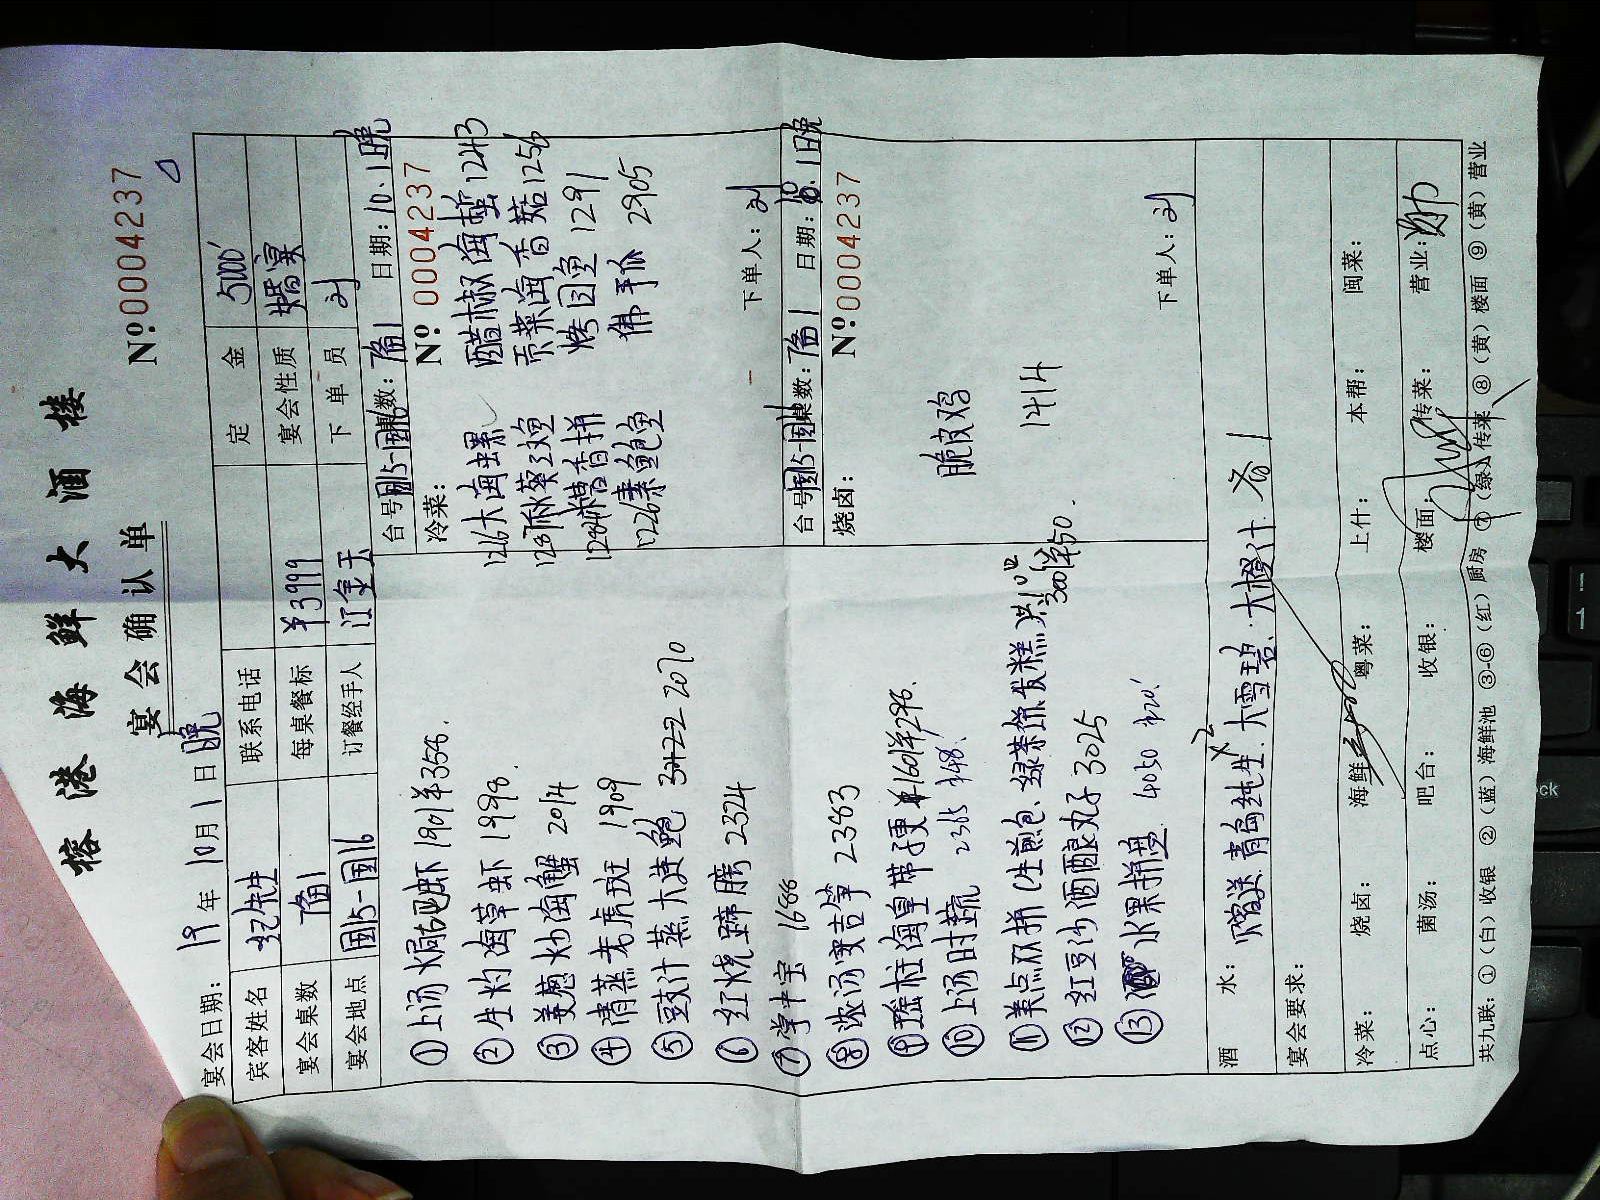 榕港海鲜大酒楼
宴会确认单
№0004237
宴会日期：19年10月1日晚
宾客姓名 纪先生 联系电话 定金 5000
宴会桌数 1 每桌餐标 ¥3999 宴会性质 婚宴
宴会地点 国15-国16 订餐经手人 江金玉 下单员 刘
①上汤焗 虾 1901 356.
②生灼海草虾 1998.
③姜葱炒海蟹 2014
④清蒸老虎斑 1909
⑤豉汁蒸大连鲍 2070
⑥红烧蹄膀 2324
⑦掌中宝 1688
⑧浓汤 苦笋 2383
⑨瑶柱海皇带子更 1601 296.
⑩上汤时蔬 2365 348.
⑪美点双拼（生煎包、绿茶 发糕
⑫红豆沙酒酿丸子 3025
⑬水果拼盘 4050
台号：国15-国16 桌数： 1 日期：10.1晚
冷菜： № 0004237
1216大海螺 醋椒海蜇 1243
1237秋葵 贡菜海香菇 1256
糟香拼 烤 鱼 1291
1226素鲍鱼 佛手瓜 2905
下单人：刘
台号：国15-国16 桌数： 1 日期：10.1晚
烧卤： №0004237
脆皮鸡 1414
下单人：刘
酒水： 赠送青岛纯生×2 大雪碧、大橙汁 各1
宴会要求：
冷菜： 烧卤： 海鲜： 粤菜： 上什： 本帮： 闽菜：
点心： 菌汤： 吧台： 收银： 楼面： 传菜： 营业：
共九联：①（白）收银 ②（蓝）海鲜池 ③-⑥（红）厨房 ⑦（绿）传菜 ⑧（黄）楼面 ⑨（黄）营业